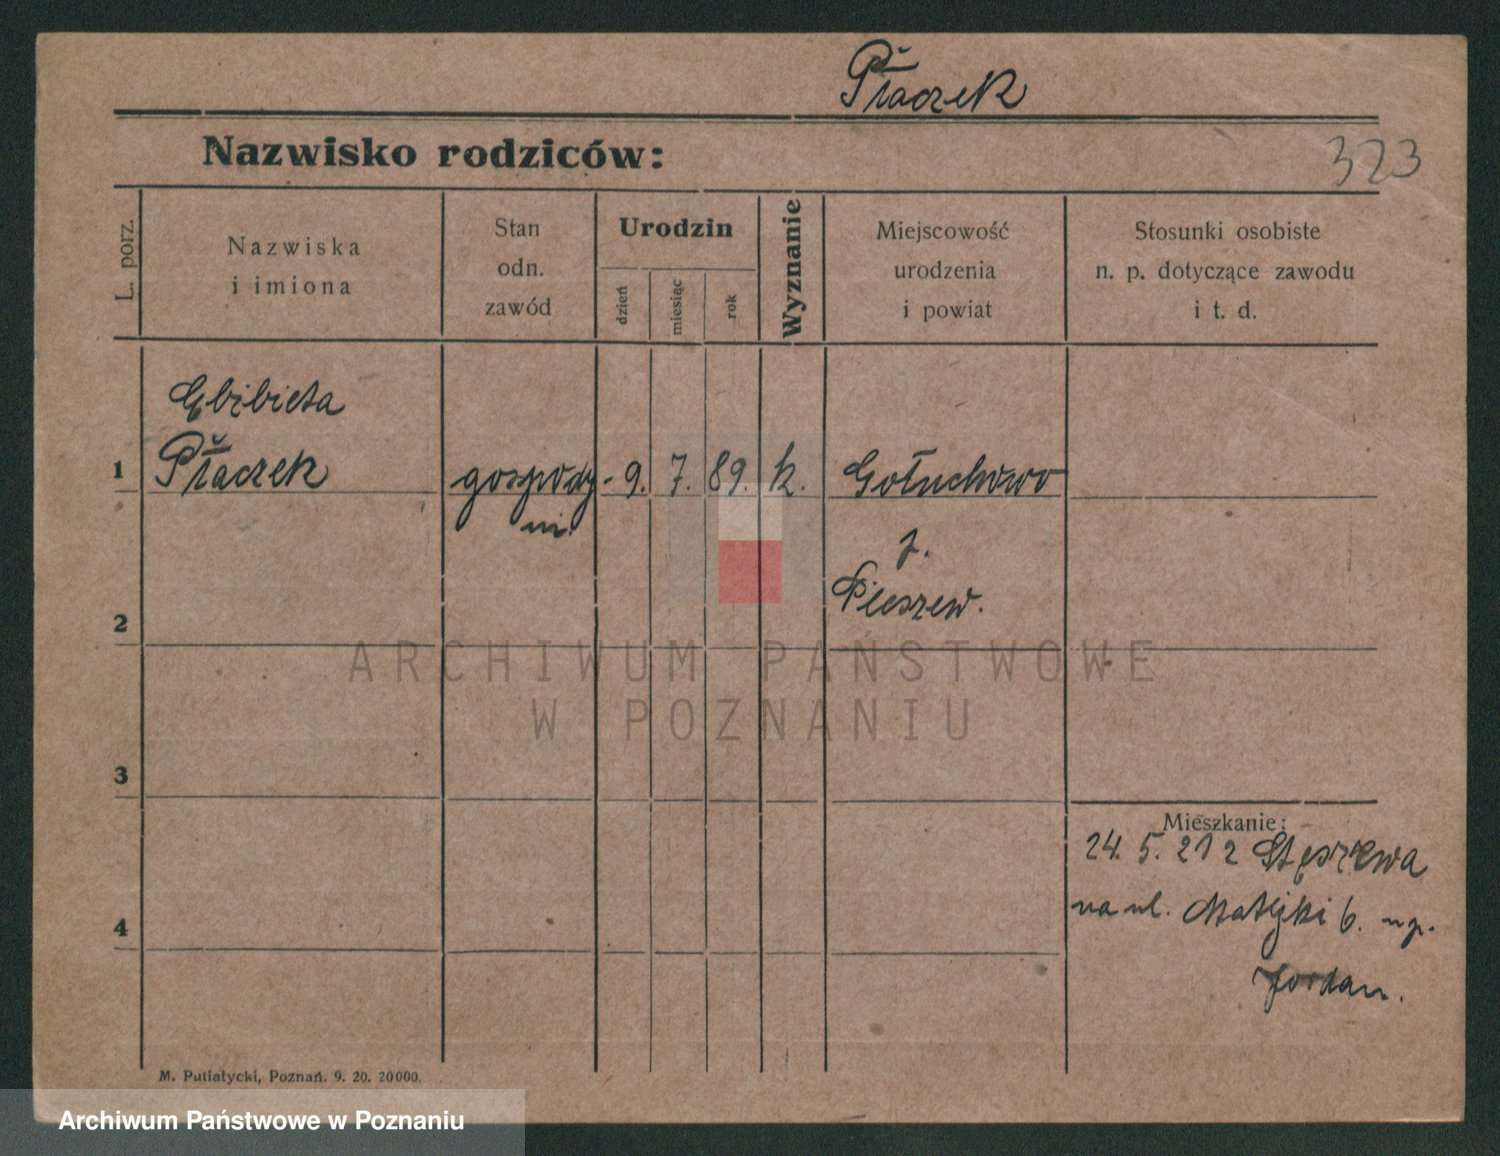 Płaczek
Nazwisko rodziców:
323
L. porz.
Nazwiska
i imiona
Stan
odn.
zawód
Urodzin
dzień
miesiąc
rok
Wyznanie
Miejscowość
urodzenia
i powiat
Stosunki osobiste
n. p. dotyczące zawodu
i t. d.
Elżbieta
1 Płaczek gospody- 9. 7. 89. k. Gołuchowo
ni.
p.
2 Pleszew.
ARCHIWUM PAŃSTWOWE
W POZNANIU
3
Mieszkanie:
24. 5. 21 z Stęszewa
4 na ul. Matejki 6.
Jordan.
M. Putiatycki, Poznań. 9. 20. 20000.
Archiwum Państwowe w Poznaniu